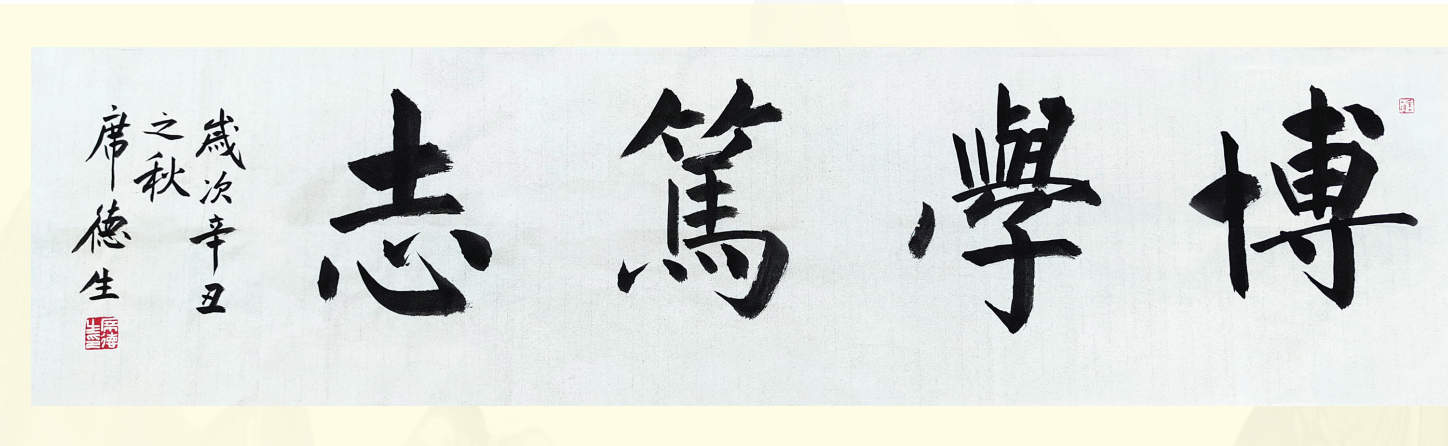 博學篤志
歲次辛丑
之秋
席德生